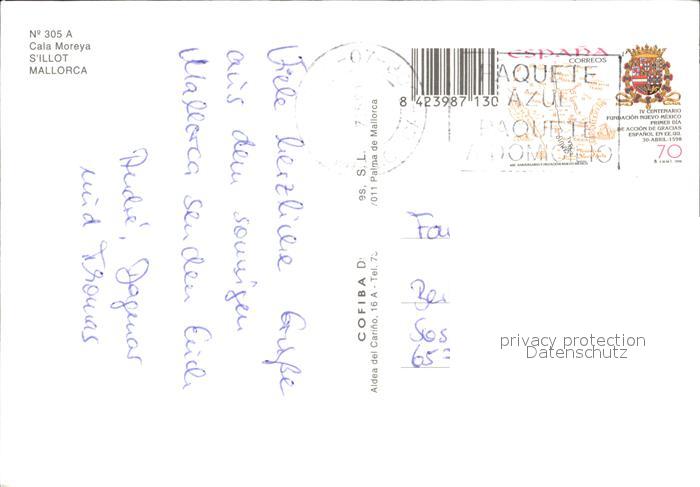 Nº 305 A
Cala Moreya
S'ILLOT
MALLORCA
Viele herzliche Grüße
aus dem sonnigen
Mallorca senden Euch
André, Dagmar
und Thomas
COFIBA D
es, S. L.
Aldea del Cariño, 16 A - Tel. 75
7011 Palma de Mallorca
8 423987 130
PAQUETE
AZUL
PAQUETE
A DOMICILIO
ESPAÑA
CORREOS
IV CENTENARIO
FUNDACIÓN NUEVO MÉXICO
PRIMER DÍA
DE ACCIÓN DE GRACIAS
ESPAÑOL EN EE.UU.
30-ABRIL-1598
70
privacy protection
Datenschutz